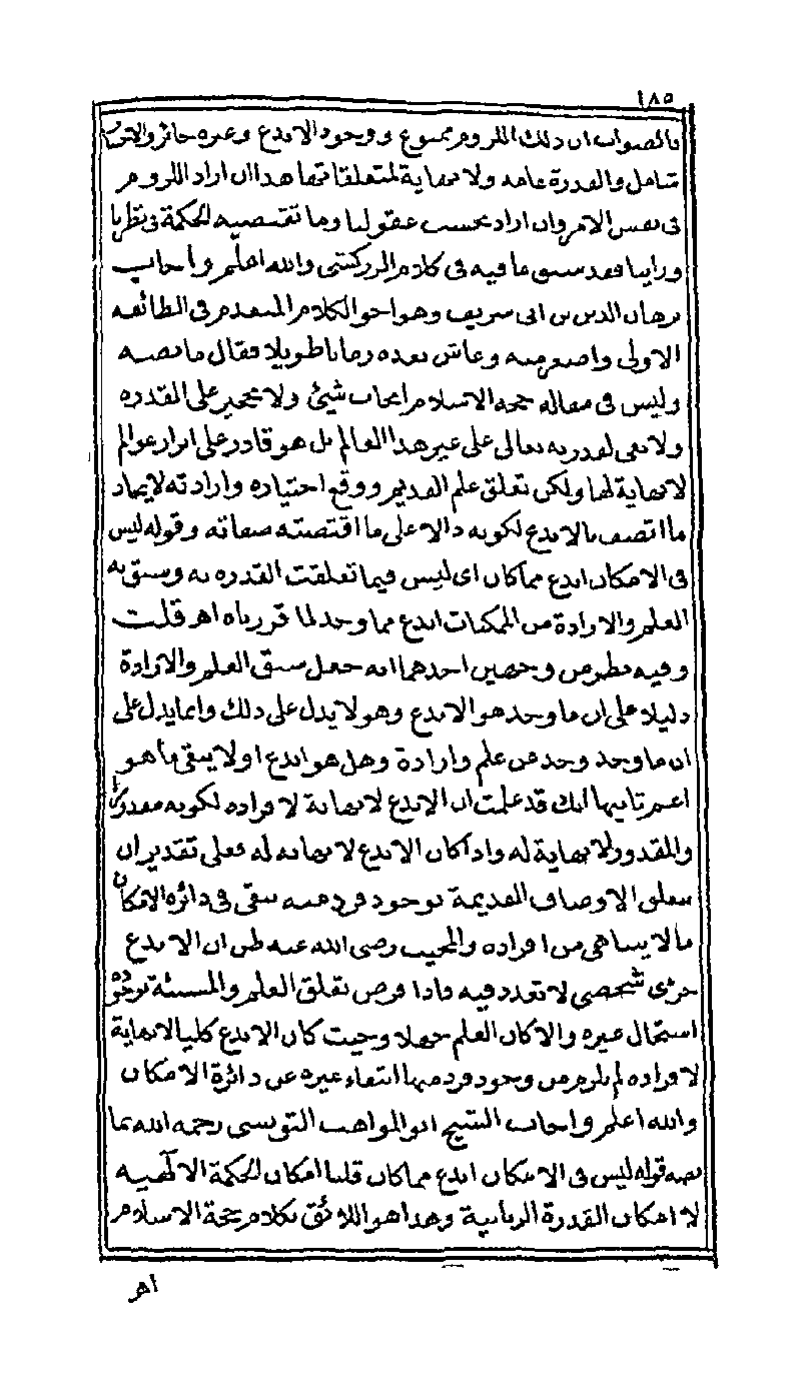 ١٨٥
فالصواب ان ذلك اللزوم ممنوع ووجود الابدع وغيره جائز والاقتدار
شامل والقدرة عامة ولا نهاية لمتعلقاتها هذا ان اراد اللزوم
في نفس الامر وان اراد بحسب عقولنا وما تقتضيه الحكمة في نظرنا
وراينا فقد سبق ما فيه في كلام الزركشي والله اعلم واجاب
برهان الدين بن ابي شريف وهو اخو الكلام المتقدم في الطائفة
الاولى واصغر منه وعاش بعده زمانا طويلا فقال ما نصه
وليس في مقالة حجة الاسلام ايجاب شيئ ولا تحجير على القدرة
ولا نفي لقدرته تعالى على غير هذا العالم بل هو قادر على ابراز عوالم
لا نهاية لها ولكن تعلق علم القديم ووقع اختياره وارادته لايجاد
ما اتصف بالابدع لكونه دالا على ما اقتضته صفاته وقوله ليس
في الامكان ابدع مما كان اى ليس فيما تعلقت القدرة به وسبق به
العلم والارادة من الممكنات ابدع مما وجد لما قررناه اهـ قلت
وفيه نظر من وجهين احدهما انه جعل سبق العلم والارادة
دليلا على ان ما وجد هو الابدع وهو لا يدل على ذلك وانما يدل على
ان ما وجد وجد عن علم وارادة وهل هو ابدع او لا يبقى ما هو
اعم ثانيها انك قد علمت ان الابدع لا نهاية لافراده لكونه مقدورا
والمقدور لا نهاية له واذا كان الابدع لا نهاية له فعلى تقدير ان
تتعلق الاوصاف القديمة بوجود فرد منه يبقى في دائرة الامكان
ما لا يتناهى من افراده والمجيب رضى الله عنه ظن ان الابدع
جزئى شخصي لا تعدد فيه فاذا فرض تعلق العلم والمشيئة بوجوده
استحال غيره والا كان العلم جهلا وحيث كان الابدع كليا لا نهاية
لافراده لم يلزم من وجود فرد منها انتفاء غيره عن دائرة الامكان
والله اعلم واجاب الشيخ ابو المواهب التونسي رحمه الله بما
نصه قوله ليس في الامكان ابدع مما كان قلنا امكان الحكمة الالهيه
لا امكان القدرة الربانية وهذا هو اللائق بكلام حجة الاسلام
اهـ